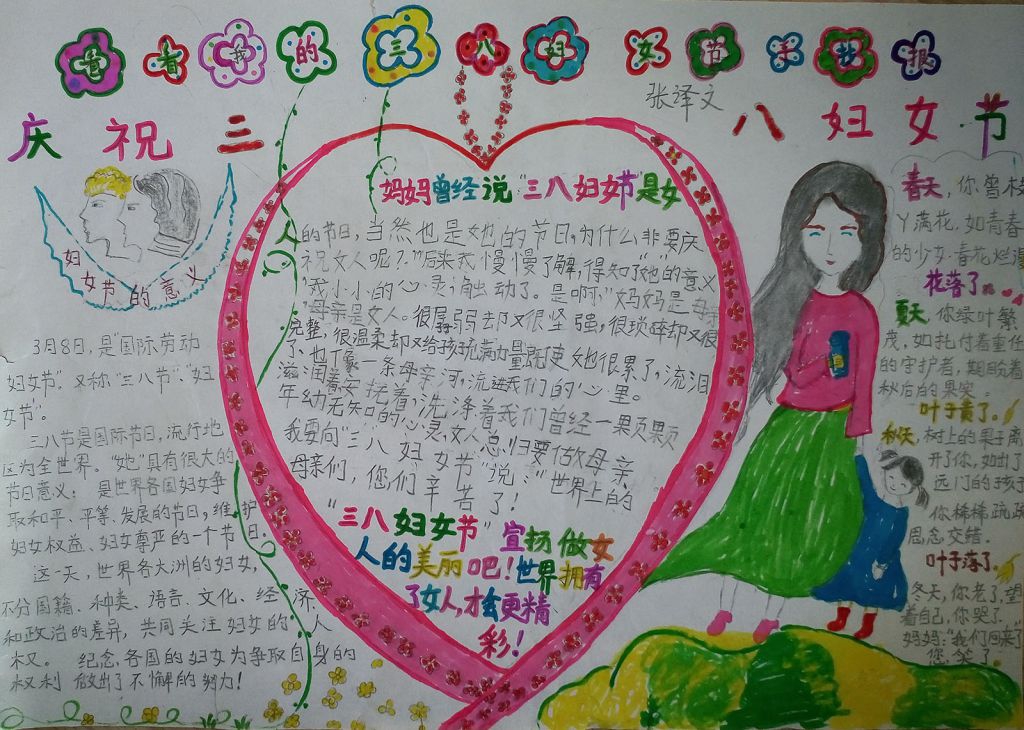 看看我的三八妇女节手抄报
张译文
庆祝三八妇女节
妇女节的意义
3月8日,是"国际劳动
妇女节"。又称"三八节"、"妇
女节"。
三八节是国际节日,流行地
区为全世界。"她"具有很大的
节日意义:是世界各国妇女争
取和平、平等、发展的节日,维护
妇女权益、妇女尊严的一个节日。
这一天,世界各大洲的妇女,
不分国籍、种类、语言、文化、经济
和政治的差异,共同关注妇女的人
权。纪念、各国的妇女为争取自身的
权利做出了不懈的努力!
妈妈曾经说"三八妇女节"是女
人的节日,当然也是她的节日。为什么非要庆
祝女人呢?"后来我慢慢了解,得知了"她"的意义
我小小的心灵触动了。是啊"妈妈是母亲
"母亲是女人。很孱弱却又很坚强,很琐碎却又很
完整,很温柔却又给孩子充满力量,既使她很累了,流泪
了,也像一条母亲河,流进我们的心里。
滋润着,安抚着,洗净着我们曾经一颗颗
年幼无知的心灵,女人总归要做母亲
我要向"三八妇女节"说:"世界上的
母亲们,您们辛苦了!
"三八妇女节"宣扬做女
人的美丽吧!世界拥有
了女人,才会更精
彩!
春天,你曾枝
丫满花,如青春
的少女,春花烂漫
花落了。
夏天,你绿叶繁
茂,如托付着重任
的守护者,期盼着
秋后的果实
叶子黄了。
秋天,树上的果子离
开了你,如出了
远门的孩子
你稀稀疏疏
思念交错.
叶子落了。
冬天,你老了,望
着自己,你哭了
妈妈:"我们回来了
您,笑了。